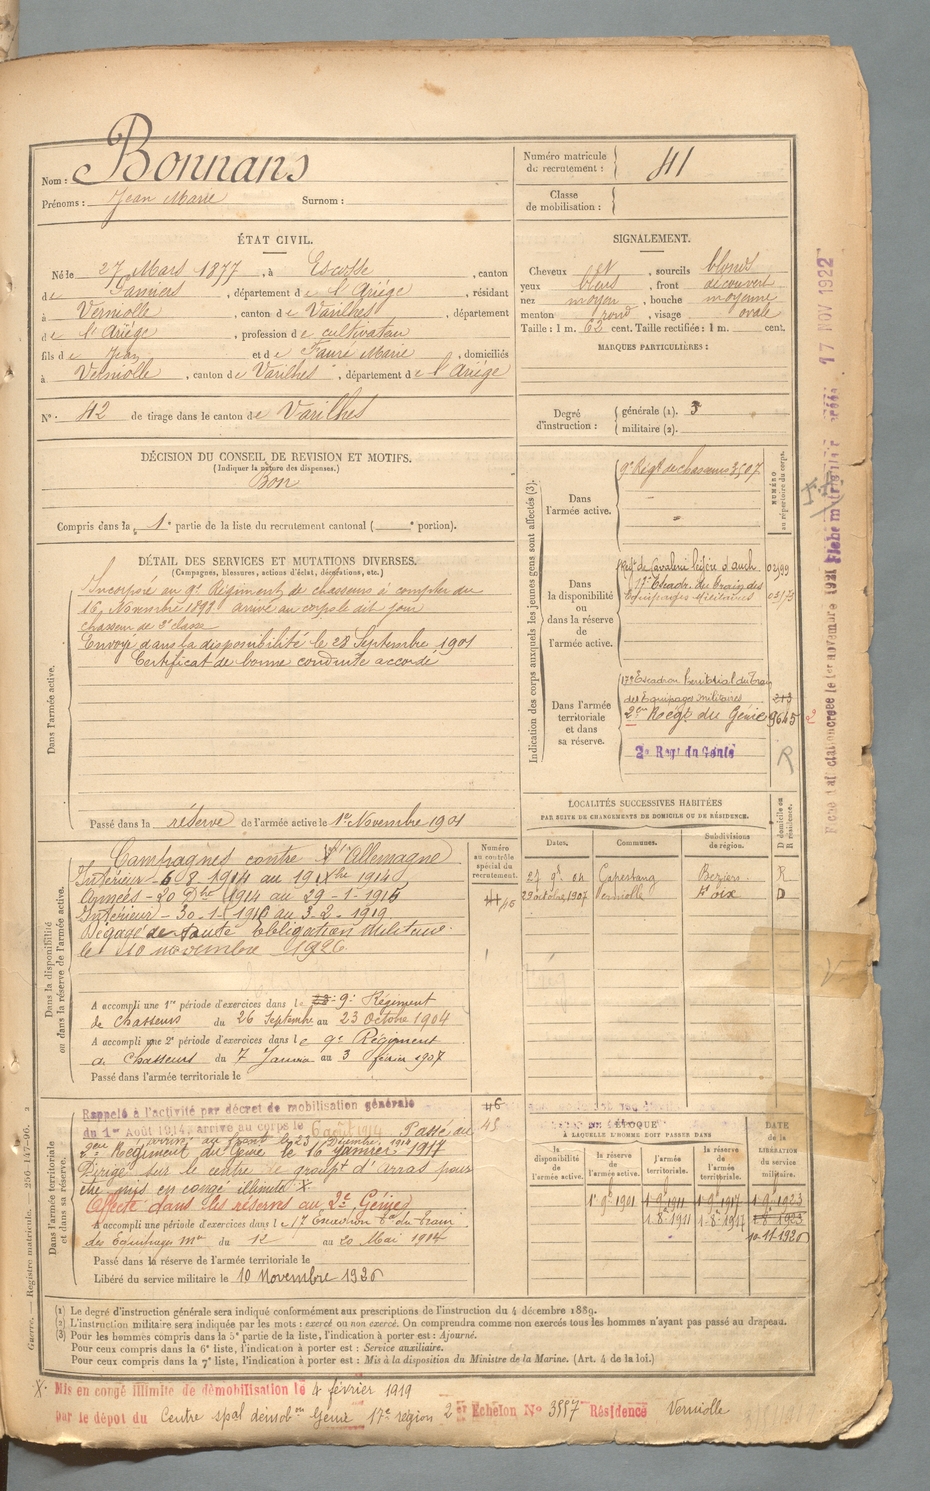 Nom : Bonnans
Prénoms : Jean Marie Surnom :
Numéro matricule du recrutement : 41
Classe de mobilisation :
ÉTAT CIVIL.
Né le 27 Mars 1877, à Escosse, canton
de Pamiers, département de l'Ariège, résidant
à Verniolle, canton de Varilhes, département
de l'Ariège, profession de cultivateur
fils de Jean et de Faure Marie, domiciliés
à Verniolle, canton de Varilhes, département de l'Ariège
N° 42 de tirage dans le canton de Varilhes
SIGNALEMENT.
Cheveux et, sourcils blonds
yeux bleus, front découvert
nez moyen, bouche moyenne
menton rond, visage ovale
Taille : 1 m. 62 cent. Taille rectifiée : 1 m. cent.
MARQUES PARTICULIÈRES :
Degré d'instruction : générale (1). 3
militaire (2).
DÉCISION DU CONSEIL DE REVISION ET MOTIFS.
(Indiquer la nature des dispenses.)
Bon
Compris dans la 1e partie de la liste du recrutement cantonal ( e portion).
DÉTAIL DES SERVICES ET MUTATIONS DIVERSES.
(Campagnes, blessures, actions d'éclat, décorations, etc.)
Dans l'armée active.
Incorporé au 9e Régiment de chasseurs à compter du
16 Novembre 1898 arrivé au corps le dit jour
chasseur de 2e classe
Envoyé dans la disponibilité le 28 Septembre 1901
Certificat de bonne conduite accordé
Passé dans la réserve de l'armée active le 1er Novembre 1901
Indication des corps auxquels les jeunes gens sont affectés (3).
NUMÉRO au répertoire du corps.
Dans l'armée active.
9e Régt de chasseurs 3507
Dans la disponibilité ou dans la réserve de l'armée active.
17e Escadr. du Train des
Equipages Militaires
Dans l'armée territoriale et dans sa réserve.
17e Escadron territorial du train
des Equipages militaires 213
2e Régt du Génie 9645 2
2e Regt du Génie
R
LOCALITÉS SUCCESSIVES HABITÉES
PAR SUITE DE CHANGEMENTS DE DOMICILE OU DE RÉSIDENCE.
D domicile ou R résidence.
Dates. Communes. Subdivisions de région.
Capestang Béziers R
29 octobre 1907 Verniolle Foix D
Numéro au contrôle spécial du recrutement.
Dans la disponibilité ou dans la réserve de l'armée active.
Campagnes contre l'Allemagne
Intérieur - 6 8 1914 au 19 Xbre 1914
Armées - 20 Dbre 1914 au 29-1-1915
Intérieur - 30-1-1915 au 3-2-1919
Dégagé de toute obligation Militaire
le 10 novembre 1926
A accompli une 1re période d'exercices dans le 9e Régiment
de Chasseurs du 26 Septembre au 23 Octobre 1904
A accompli une 2e période d'exercices dans le 9e Régiment
de Chasseurs du 7 Janvier au 3 février 1907
Passé dans l'armée territoriale le
Dans l'armée territoriale et dans sa réserve.
Rappelé à l'activité par décret de mobilisation générale
du 1er Août 1914, arrivé au corps le 6 août 1914 Passé au
arrivé au front le 23 Décembre 1914
2e Régiment du Génie le 16 Janvier 1917
Dirigé sur le centre de groupt d'Arras pour
être mis en congé illimité X
Affecté dans les réserves au 2e Génie
A accompli une période d'exercices dans le 17 Escadron tal du Train
des Equipages Mres du 12 au 20 Mai 1914
Passé dans la réserve de l'armée territoriale le
Libéré du service militaire le 10 Novembre 1926
46
43
ÉPOQUE
À LAQUELLE L'HOMME DOIT PASSER DANS
la disponibilité de l'armée active.
la réserve de l'armée active.
l'armée territoriale.
la réserve de l'armée territoriale.
DATE de la LIBÉRATION du service militaire.
1 9 1901 1 9 1911 1 9 1917 1 9 1923
1.8.1911 1.8.1917 1 8 1923
10-11-1926
(1) Le degré d'instruction générale sera indiqué conformément aux prescriptions de l'instruction du 4 décembre 1889.
(2) L'instruction militaire sera indiquée par les mots : exercé ou non exercé. On comprendra comme non exercés tous les hommes n'ayant pas passé au drapeau.
(3) Pour les hommes compris dans la 5e partie de la liste, l'indication à porter est : Ajourné.
Pour ceux compris dans la 6e liste, l'indication à porter est : Service auxiliaire.
Pour ceux compris dans la 7e liste, l'indication à porter est : Mis à la disposition du Ministre de la Marine. (Art. 4 de la loi.)
X. Mis en congé illimité de démobilisation le 4 février 1919
par le dépôt du Centre spal démobon Génie 17e région 2e Echelon No 3557 Résidence Verniolle
Guerre. — Registre matricule. 256-147-96.
17 NOV 1922